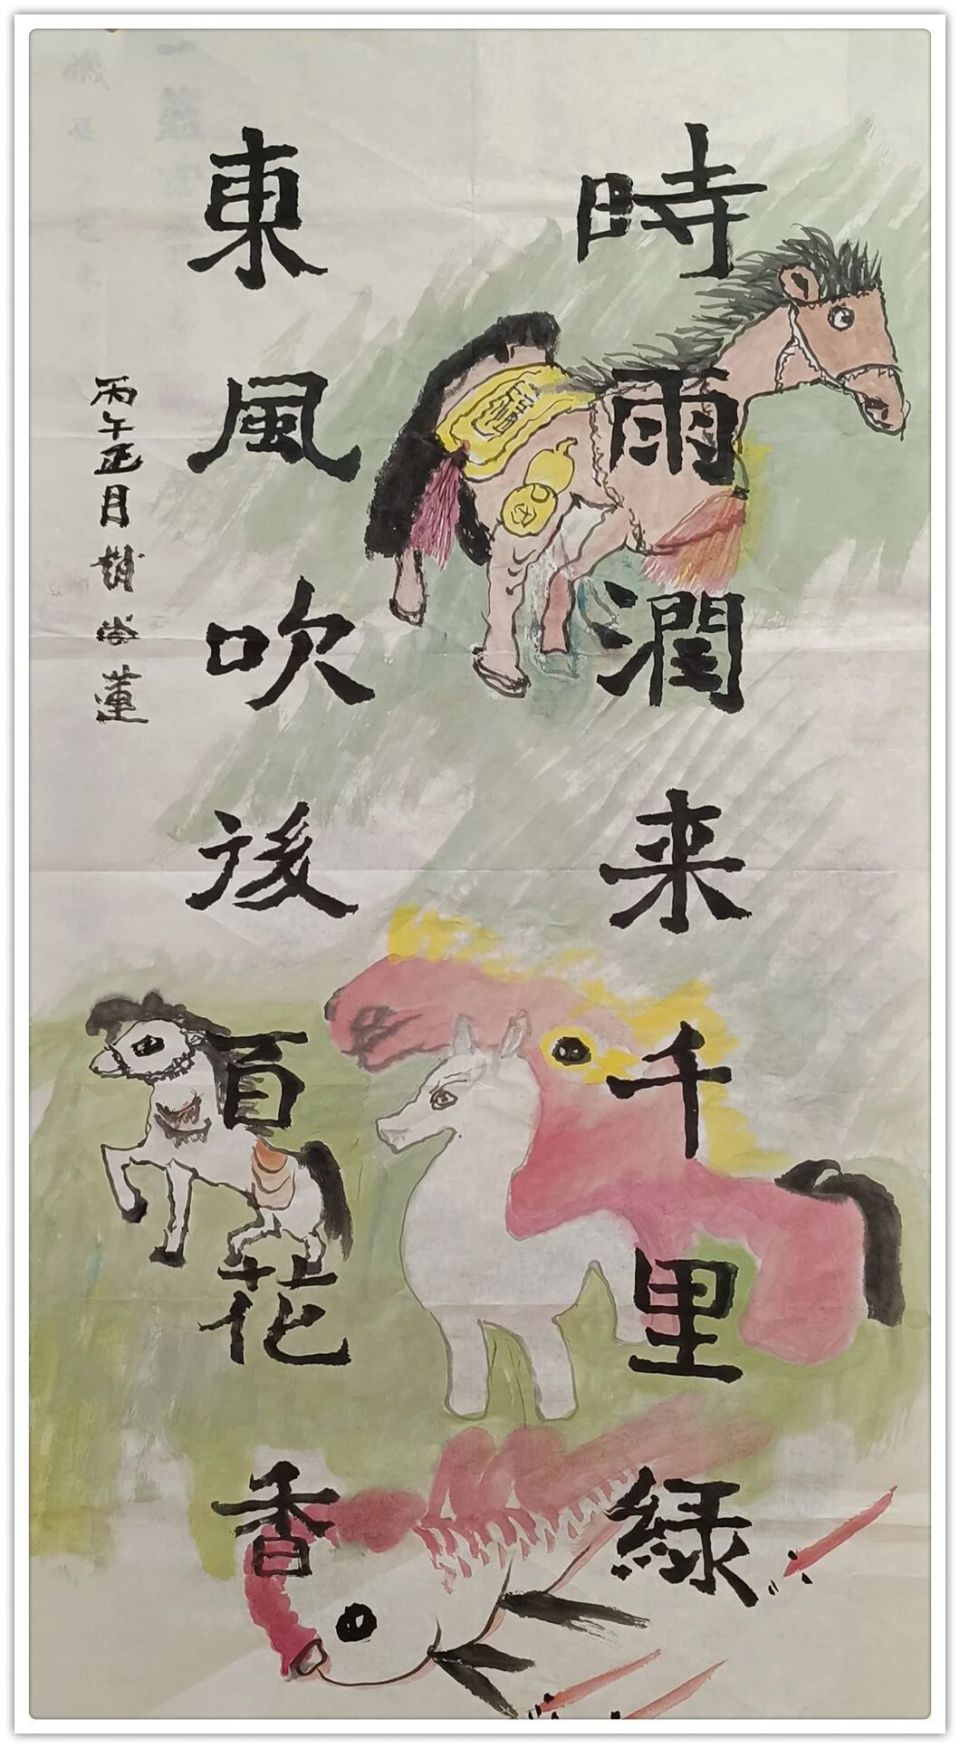 時雨潤来千里緑
東風吹後百花香
丙午正月趙尚蓮